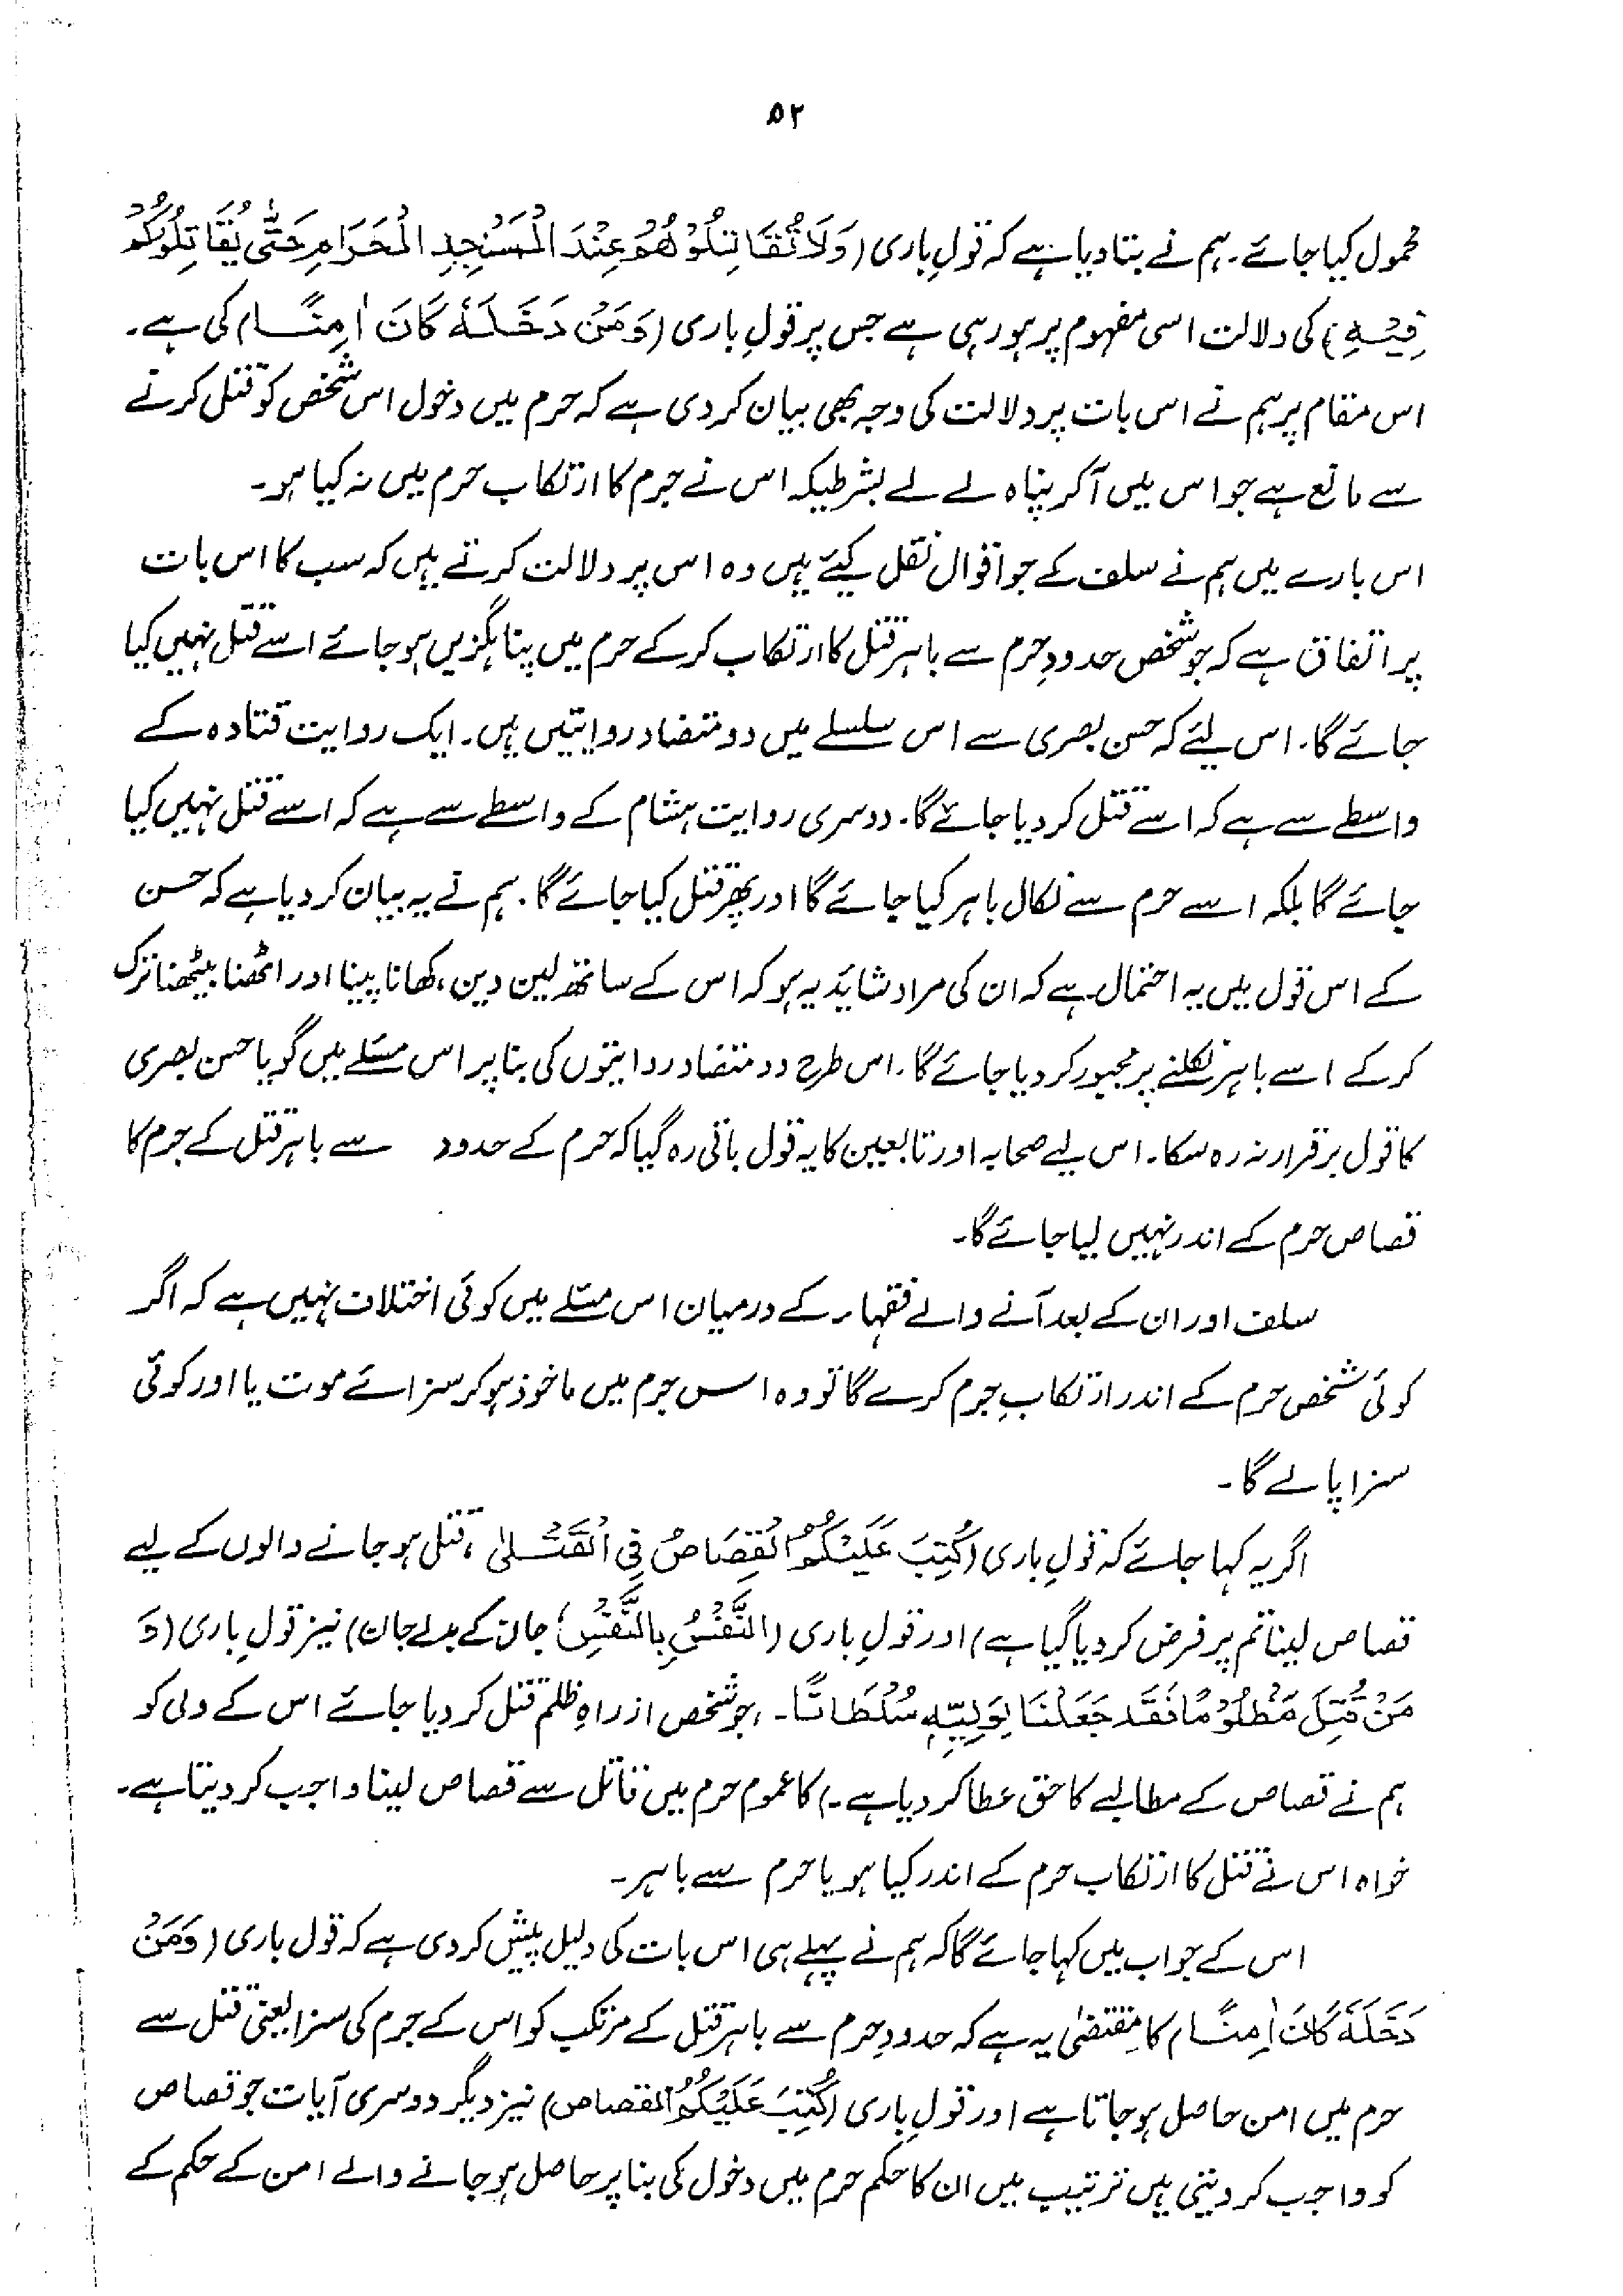 ۵۲
محمول کیا جائے۔ ہم نے بتا دیا ہے کہ قولِ باری (وَلَا تُقَاتِلُوْهُمْ عِنْدَ الْمَسْجِدِ الْحَرَامِ حَتّٰى يُقَاتِلُوْكُمْ
فِيْهِ) کی دلالت اسی مفہوم پر ہو رہی ہے جس پر قولِ باری (وَمَنْ دَخَلَهٗ كَانَ اٰمِنًا) کی ہے۔
اس مقام پر ہم نے اس بات پر دلالت کی وجہ بھی بیان کر دی ہے کہ حرم میں دخول اس شخص کو قتل کرنے
سے مانع ہے جو اس میں آکر پناہ لے لے بشرطیکہ اس نے جرم کا ارتکاب حرم میں نہ کیا ہو۔
اس بارے میں ہم نے سلف کے جو اقوال نقل کیئے ہیں وہ اس پر دلالت کرتے ہیں کہ سب کا اس بات
پر اتفاق ہے کہ جو شخص حدودِ حرم سے باہر قتل کا ارتکاب کر کے حرم میں پناہ گزیں ہو جائے اسے قتل نہیں کیا
جائے گا۔ اس لیئے کہ حسن بصری سے اس سلسلے میں دو متضاد روایتیں ہیں۔ ایک روایت قتادہ کے
واسطے سے ہے کہ اسے قتل کر دیا جائے گا۔ دوسری روایت ہشام کے واسطے سے ہے کہ اسے قتل نہیں کیا
جائے گا بلکہ اسے حرم سے نکال باہر کیا جائے گا اور پھر قتل کیا جائے گا۔ ہم نے یہ بیان کر دیا ہے کہ حسن
کے اس قول میں یہ احتمال ہے کہ ان کی مراد شاید یہ ہو کہ اس کے ساتھ لین دین، کھانا پینا اور اٹھنا بیٹھنا ترک
کر کے اسے باہر نکلنے پر مجبور کر دیا جائے گا۔ اس طرح دو متضاد روایتوں کی بنا پر اس مسئلے میں گویا حسن بصری
کا قول برقرار نہ رہ سکا۔ اس لیے صحابہ اور تابعین کا یہ قول باقی رہ گیا کہ حرم کے حدود سے باہر قتل کے جرم کا
قصاص حرم کے اندر نہیں لیا جائے گا۔
سلف اور ان کے بعد آنے والے فقہاء کے درمیان اس مسئلے میں کوئی اختلاف نہیں ہے کہ اگر
کوئی شخص حرم کے اندر ارتکابِ جرم کرے گا تو وہ اس جرم میں ماخوذ ہو کر سزائے موت یا اور کوئی
سزا پالے گا۔
اگر یہ کہا جائے کہ قولِ باری (كُتِبَ عَلَيْكُمُ الْقِصَاصُ فِي الْقَتْلٰى، قتل ہو جانے والوں کے لیے
قصاص لینا تم پر فرض کر دیا گیا ہے) اور قولِ باری (النَّفْسُ بِالنَّفْسِ، جان کے بدلے جان) نیز قولِ باری (وَ
مَنْ قُتِلَ مَظْلُوْمًا فَقَدْ جَعَلْنَا لِوَلِيِّهٖ سُلْطَانًا۔ جو شخص از راہِ ظلم قتل کر دیا جائے اس کے ولی کو
ہم نے قصاص کے مطالبے کا حق عطا کر دیا ہے۔) کا عموم حرم میں قاتل سے قصاص لینا واجب کر دیتا ہے۔
خواہ اس نے قتل کا ارتکاب حرم کے اندر کیا ہو یا حرم سے باہر۔
اس کے جواب میں کہا جائے گا کہ ہم نے پہلے ہی اس بات کی دلیل پیش کر دی ہے کہ قول باری (وَمَنْ
دَخَلَهٗ كَانَ اٰمِنًا) کا مقتضیٰ یہ ہے کہ حدودِ حرم سے باہر قتل کے مرتکب کو اس کے جرم کی سزا یعنی قتل سے
حرم میں امن حاصل ہو جاتا ہے اور قولِ باری (كُتِبَ عَلَيْكُمُ القصاص) نیز دیگر دوسری آیات جو قصاص
کو واجب کر دیتی ہیں ترتیب میں ان کا حکم حرم میں دخول کی بنا پر حاصل ہو جانے والے امن کے حکم کے